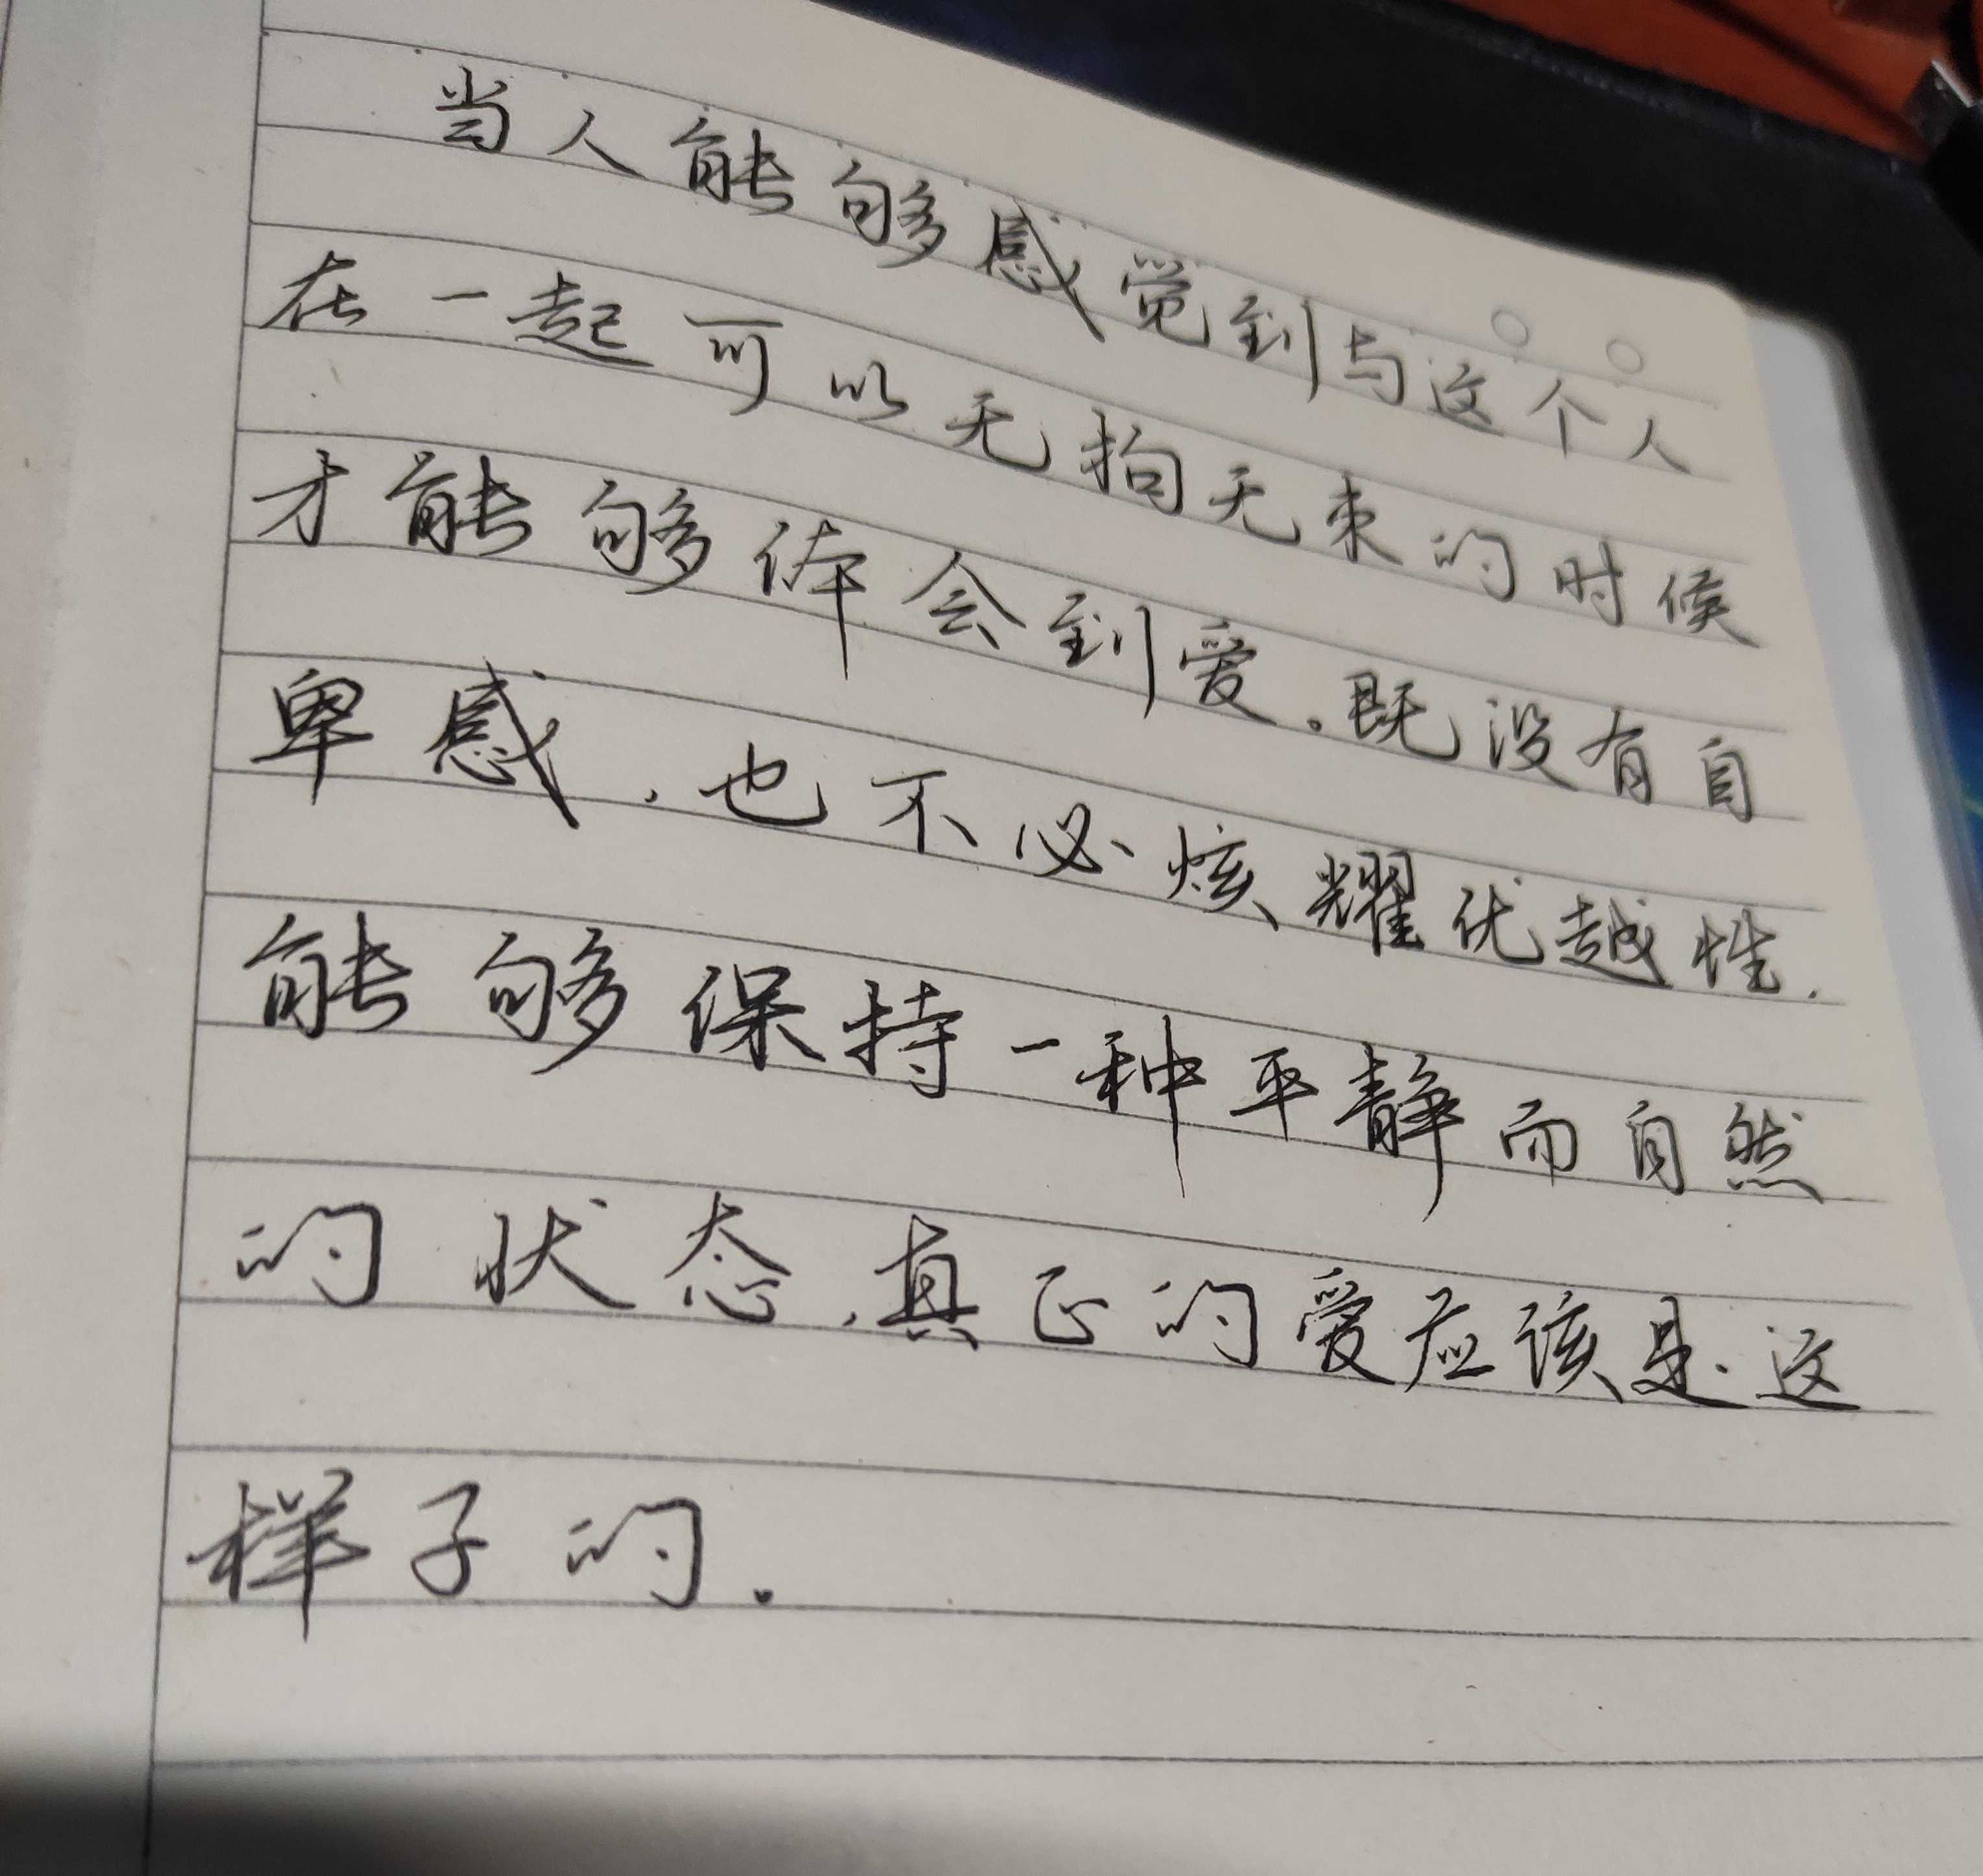 当人能够感觉到与这个人
在一起可以无拘无束的时候
才能够体会到爱。既没有自
卑感，也不必炫耀优越性.
能够保持一种平静而自然
的状态，真正的爱应该是这
样子的.